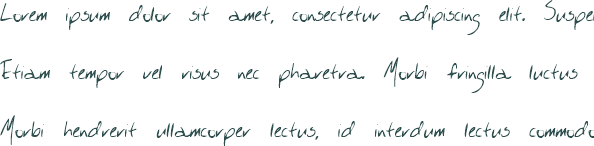 Lorem ipsum dolor sit amet, consectetur adipiscing elit. Suspe
Etiam tempor vel risus nec pharetra. Morbi fringilla luctus
Morbi hendrerit ullamcorper lectus, id interdum lectus commodo